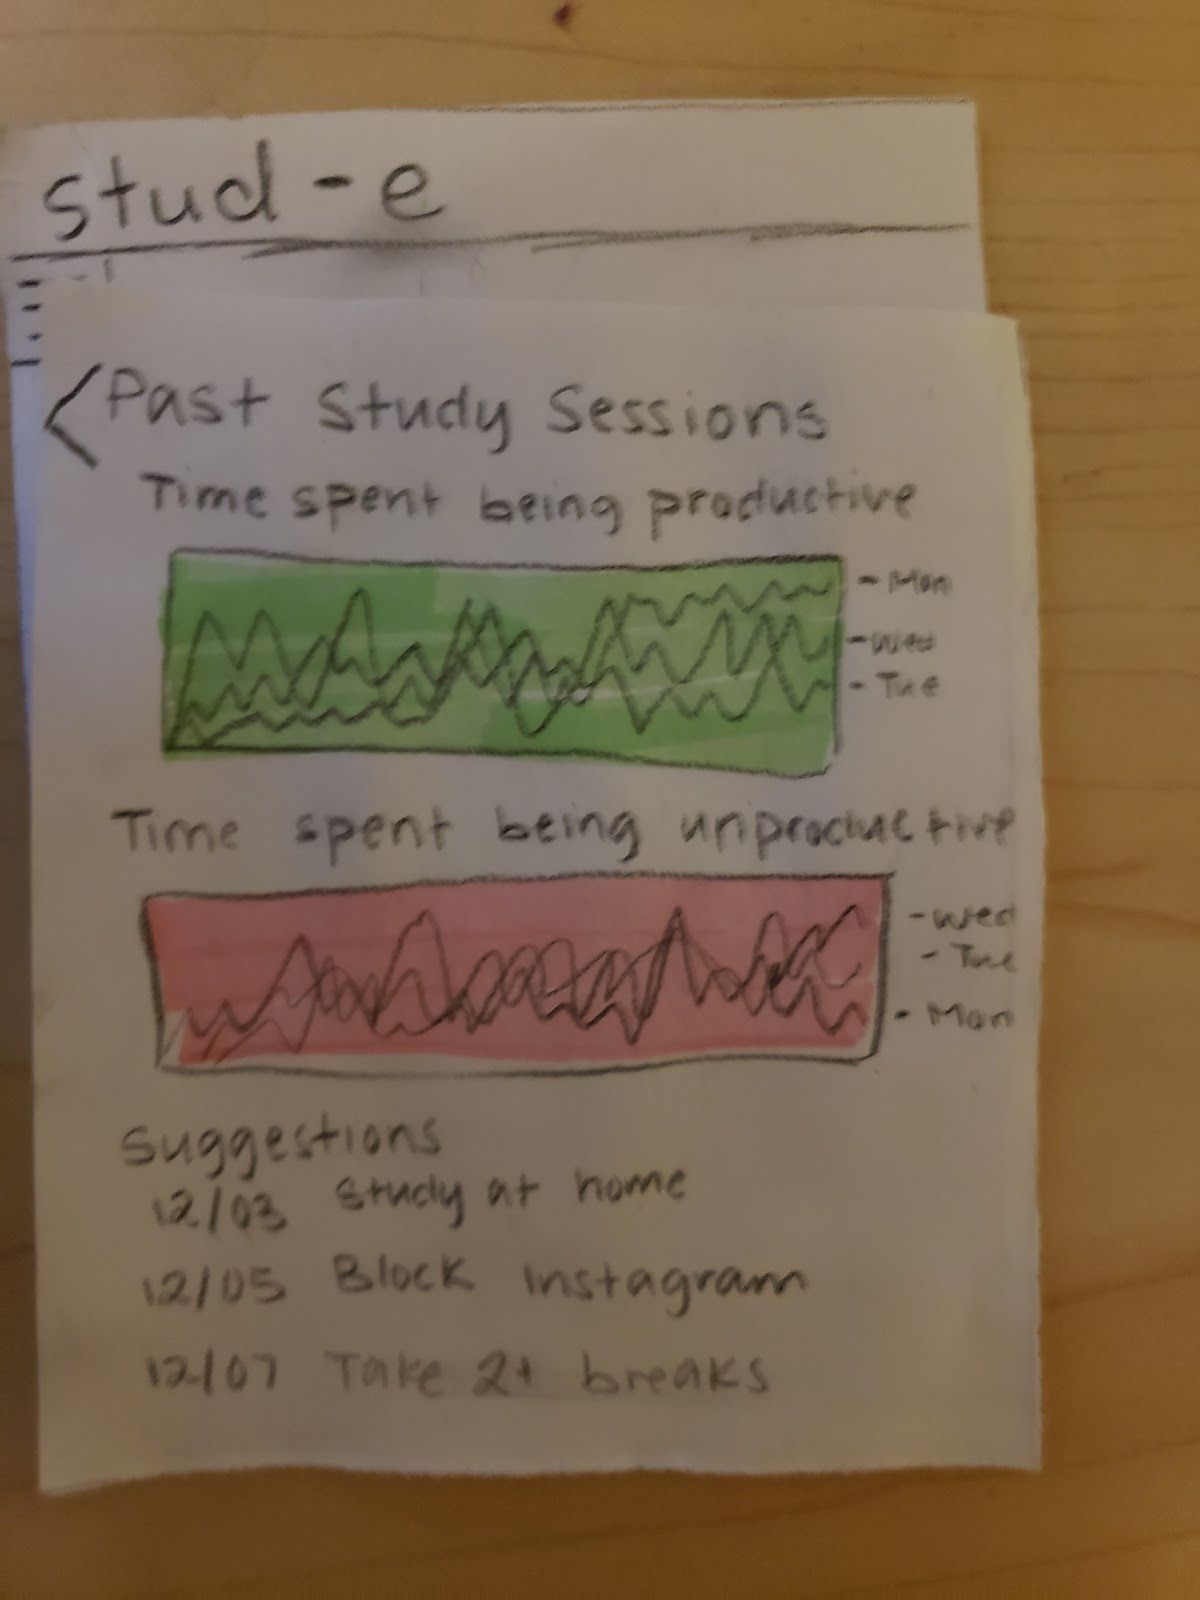 stud-e
Past Study Sessions
Time spent being productive
- Mon
- Wed
- Tue
Time spent being unproductive
- Wed
- Tue
- Mon
Suggestions
12/03 Study at home
12/05 Block Instagram
12/07 Take 2+ breaks